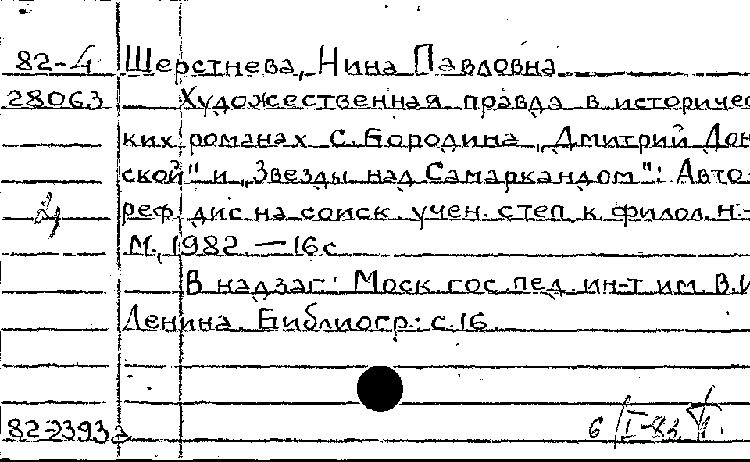 82-4 Шерстнева, Нина Павловна
28063 Художественная правда в историчес
ких романах С. Бородина „Дмитрий Дон
ской" и „Звезды над Самаркандом": Авто-
реф. дис на соиск. учен. степ к. филол. н.-
М., 1982. — 16с
В надзаг: Моск. гос. пед. ин-т им. В.И
Ленина. Библиогр: с. 16
82-2393а 6/I-83